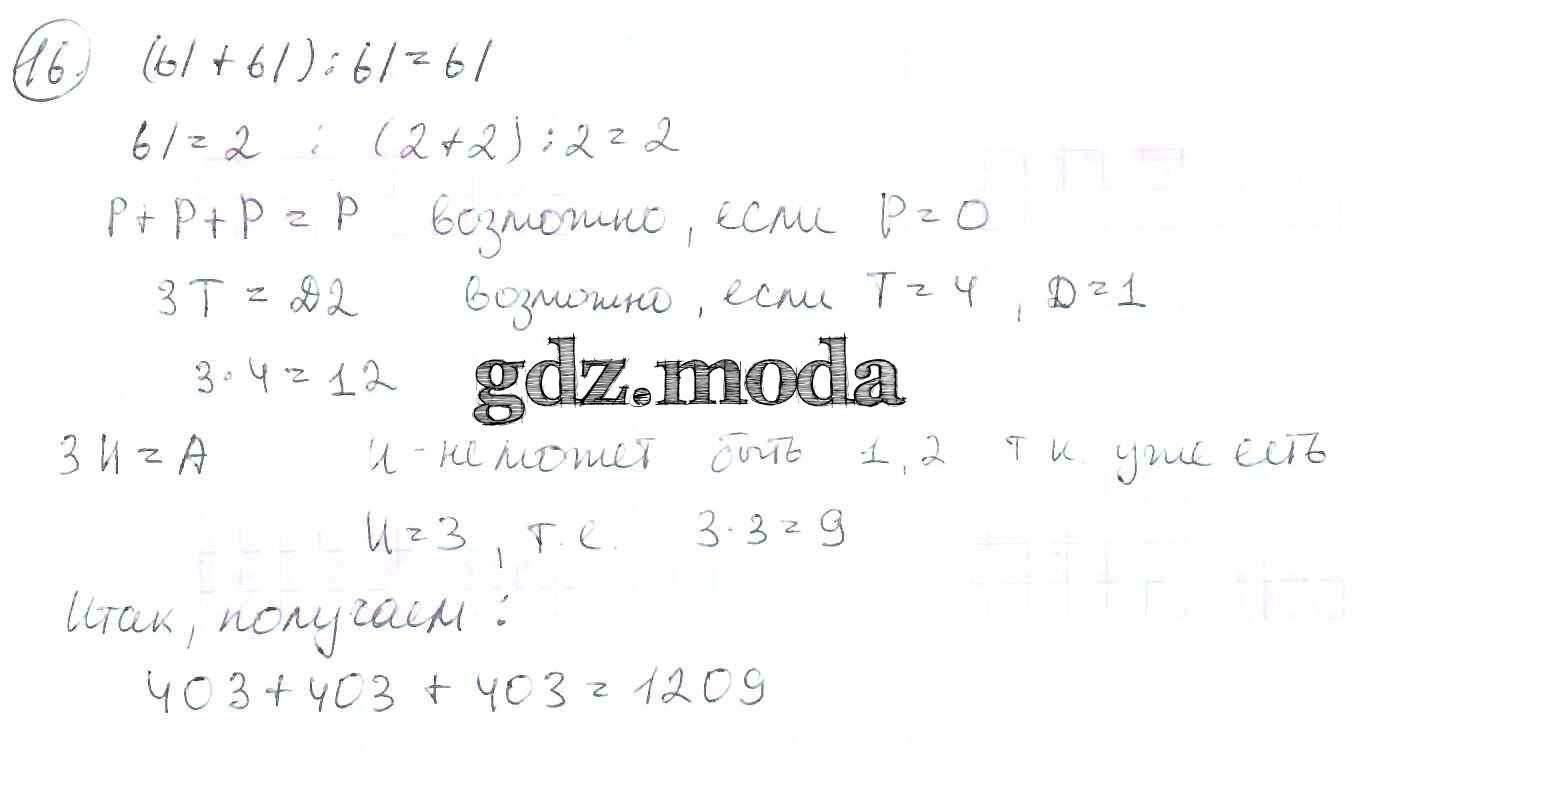 16. (Ы + Ы) : Ы = Ы
Ы = 2 : (2 + 2) : 2 = 2
Р + Р + Р = Р возможно, если Р = 0
3Т = Д2 возможно, если Т = 4, Д = 1
3 · 4 = 12
gdz.moda
3И = А И - не может быть 1, 2 т к. уже есть
И = 3, т.е. 3 · 3 = 9
Итак, получаем :
403 + 403 + 403 = 1209